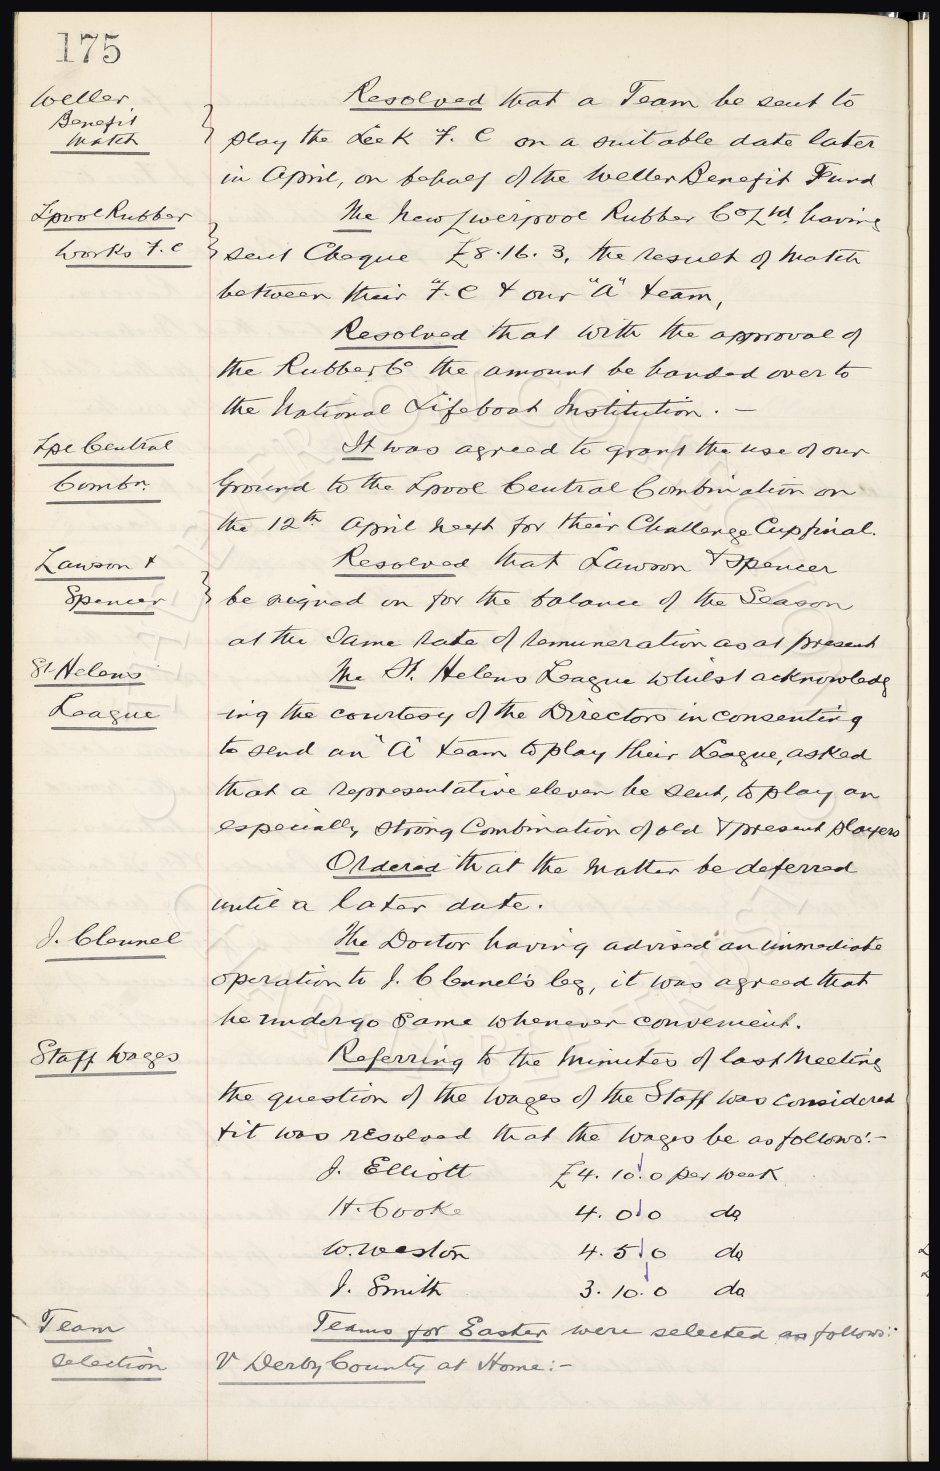 175
Weller
Benefit
Match
Resolved that a Team be sent to
play the Leek F. C on a suitable date later
in April, on behalf of the Weller Benefit Fund
L'pool Rubber
Works F. C
The New Liverpool Rubber Co Ltd. having
sent Cheque £8. 16. 3, the result of Match
between their "F. C & our "A" team,
Resolved that with the approval of
the Rubber Co the amount be handed over to
the National Lifeboat Institution. -
Lpl Central
Combn.
It was agreed to grant the use of our
Ground to the Lpool Central Combination on
the 12th April next for their Challenge Cup final.
Lawson &
Spencer
Resolved that Lawson & Spencer
be signed on for the balance of the Season
at the same rate of remuneration as at present
St Helens
League
The St. Helens League whilst acknowledg
-ing the courtesy of the Directors in consenting
to send an "A" team to play their League, asked
that a representative eleven be sent, to play an
especially strong Combination of old & present players
Ordered that the Matter be deferred
until a later date.
J. Clennel
The Doctor having advised an immediate
operation to J. Clennel's leg, it was agreed that
he undergo same whenever convenient.
Staff Wages
Referring to the Minutes of last Meeting
the question of the wages of the Staff was considered
& it was resolved that the wages be as follows:-
J. Elliott £4. 10. 0 per week
H. Cooke 4. 0 0 do
W. Weston 4. 5 0 do
J. Smith 3. 10. 0 do
Team
Selection
Teams for Easter were selected as follows:-
V Derby County at Home:-